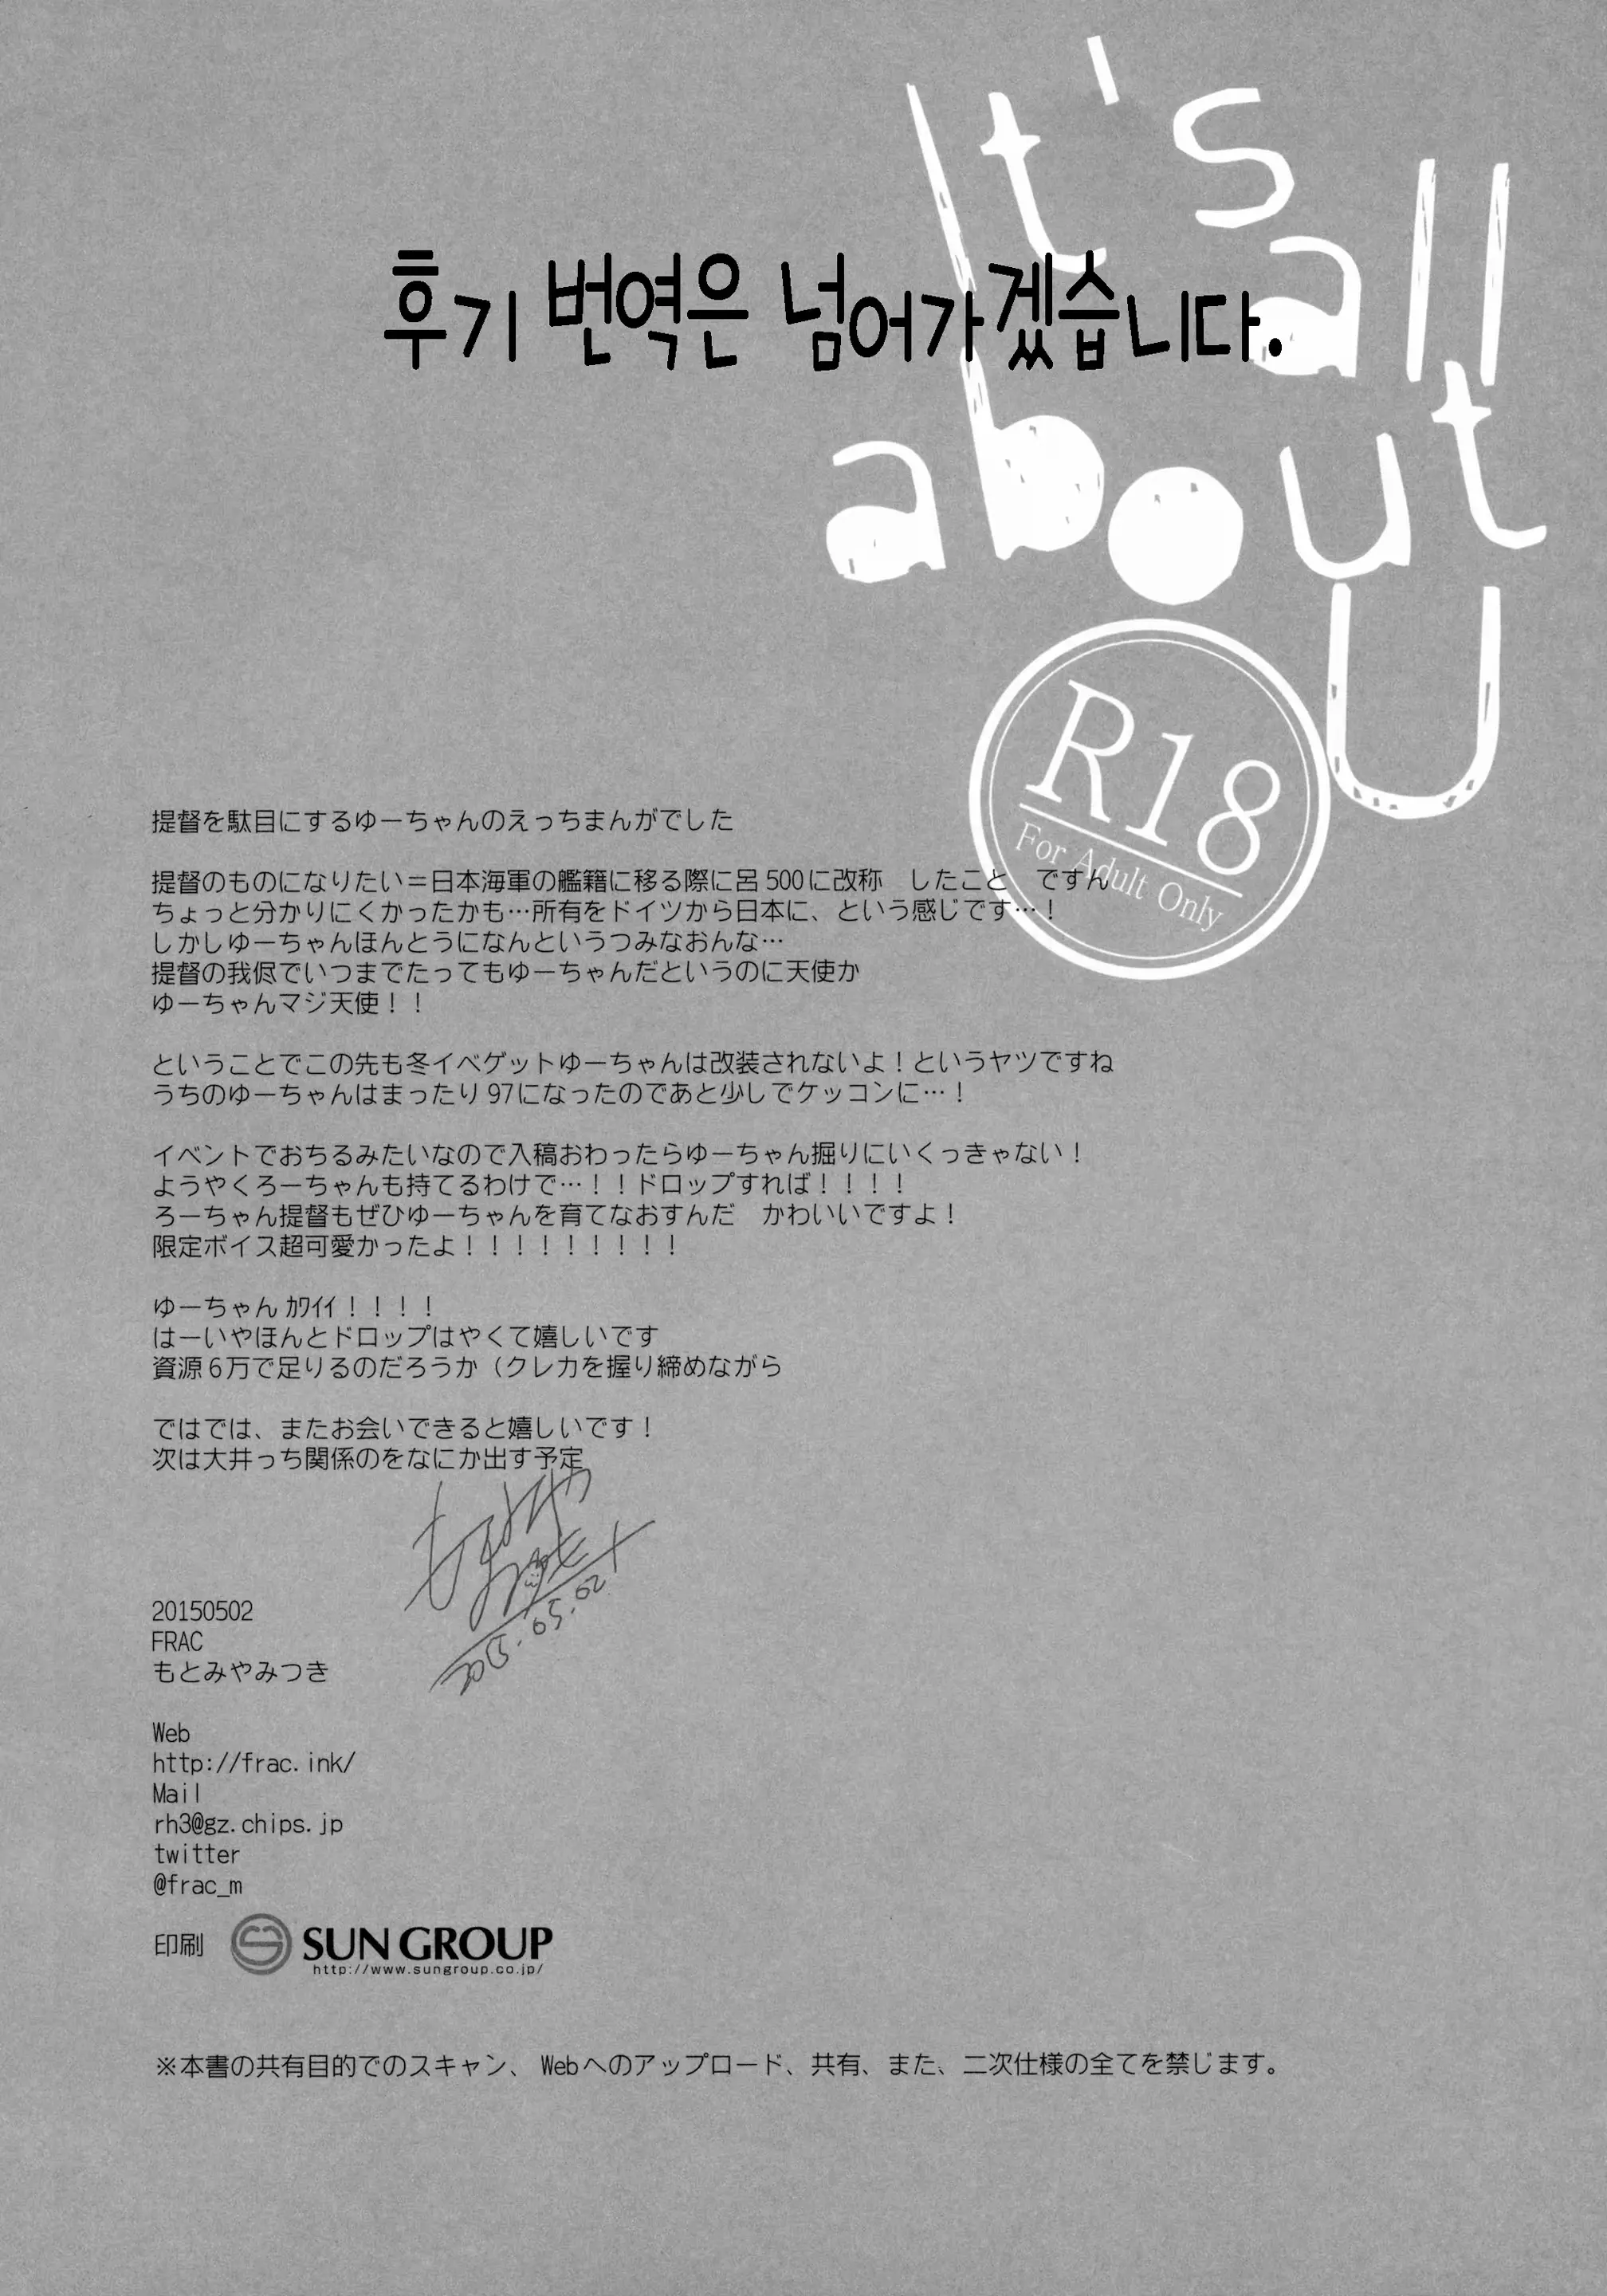 It's all
about
U
후기 번역은 넘어가겠습니다.
R18
For Adult Only
提督を駄目にするゆーちゃんのえっちまんがでした
提督のものになりたい＝日本海軍の艦籍に移る際に呂500に改称　したこと　ですん
ちょっと分かりにくかったかも…所有をドイツから日本に、という感じです…！
しかしゆーちゃんほんとうになんというつみなおんな…
提督の我侭でいつまでたってもゆーちゃんだというのに天使か
ゆーちゃんマジ天使！！
ということでこの先も冬イベゲットゆーちゃんは改装されないよ！というヤツですね
うちのゆーちゃんはまったり97になったのであと少しでケッコンに…！
イベントでおちるみたいなので入稿おわったらゆーちゃん掘りにいくっきゃない！
ようやくろーちゃんも持てるわけで…！！ドロップすれば！！！！
ろーちゃん提督もぜひゆーちゃんを育てなおすんだ　かわいいですよ！
限定ボイス超可愛かったよ！！！！！！！！！
ゆーちゃん ｶﾜｲｲ！！！！
はーいやほんとドロップはやくて嬉しいです
資源6万で足りるのだろうか（クレカを握り締めながら
ではでは、またお会いできると嬉しいです！
次は大井っち関係のをなにか出す予定
2015.05.02
20150502
FRAC
もとみやみつき
Web
http://frac.ink/
Mail
rh3@gz.chips.jp
twitter
@frac_m
印刷 SUN GROUP
http://www.sungroup.co.jp/
※本書の共有目的でのスキャン、Webへのアップロード、共有、また、二次仕様の全てを禁じます。